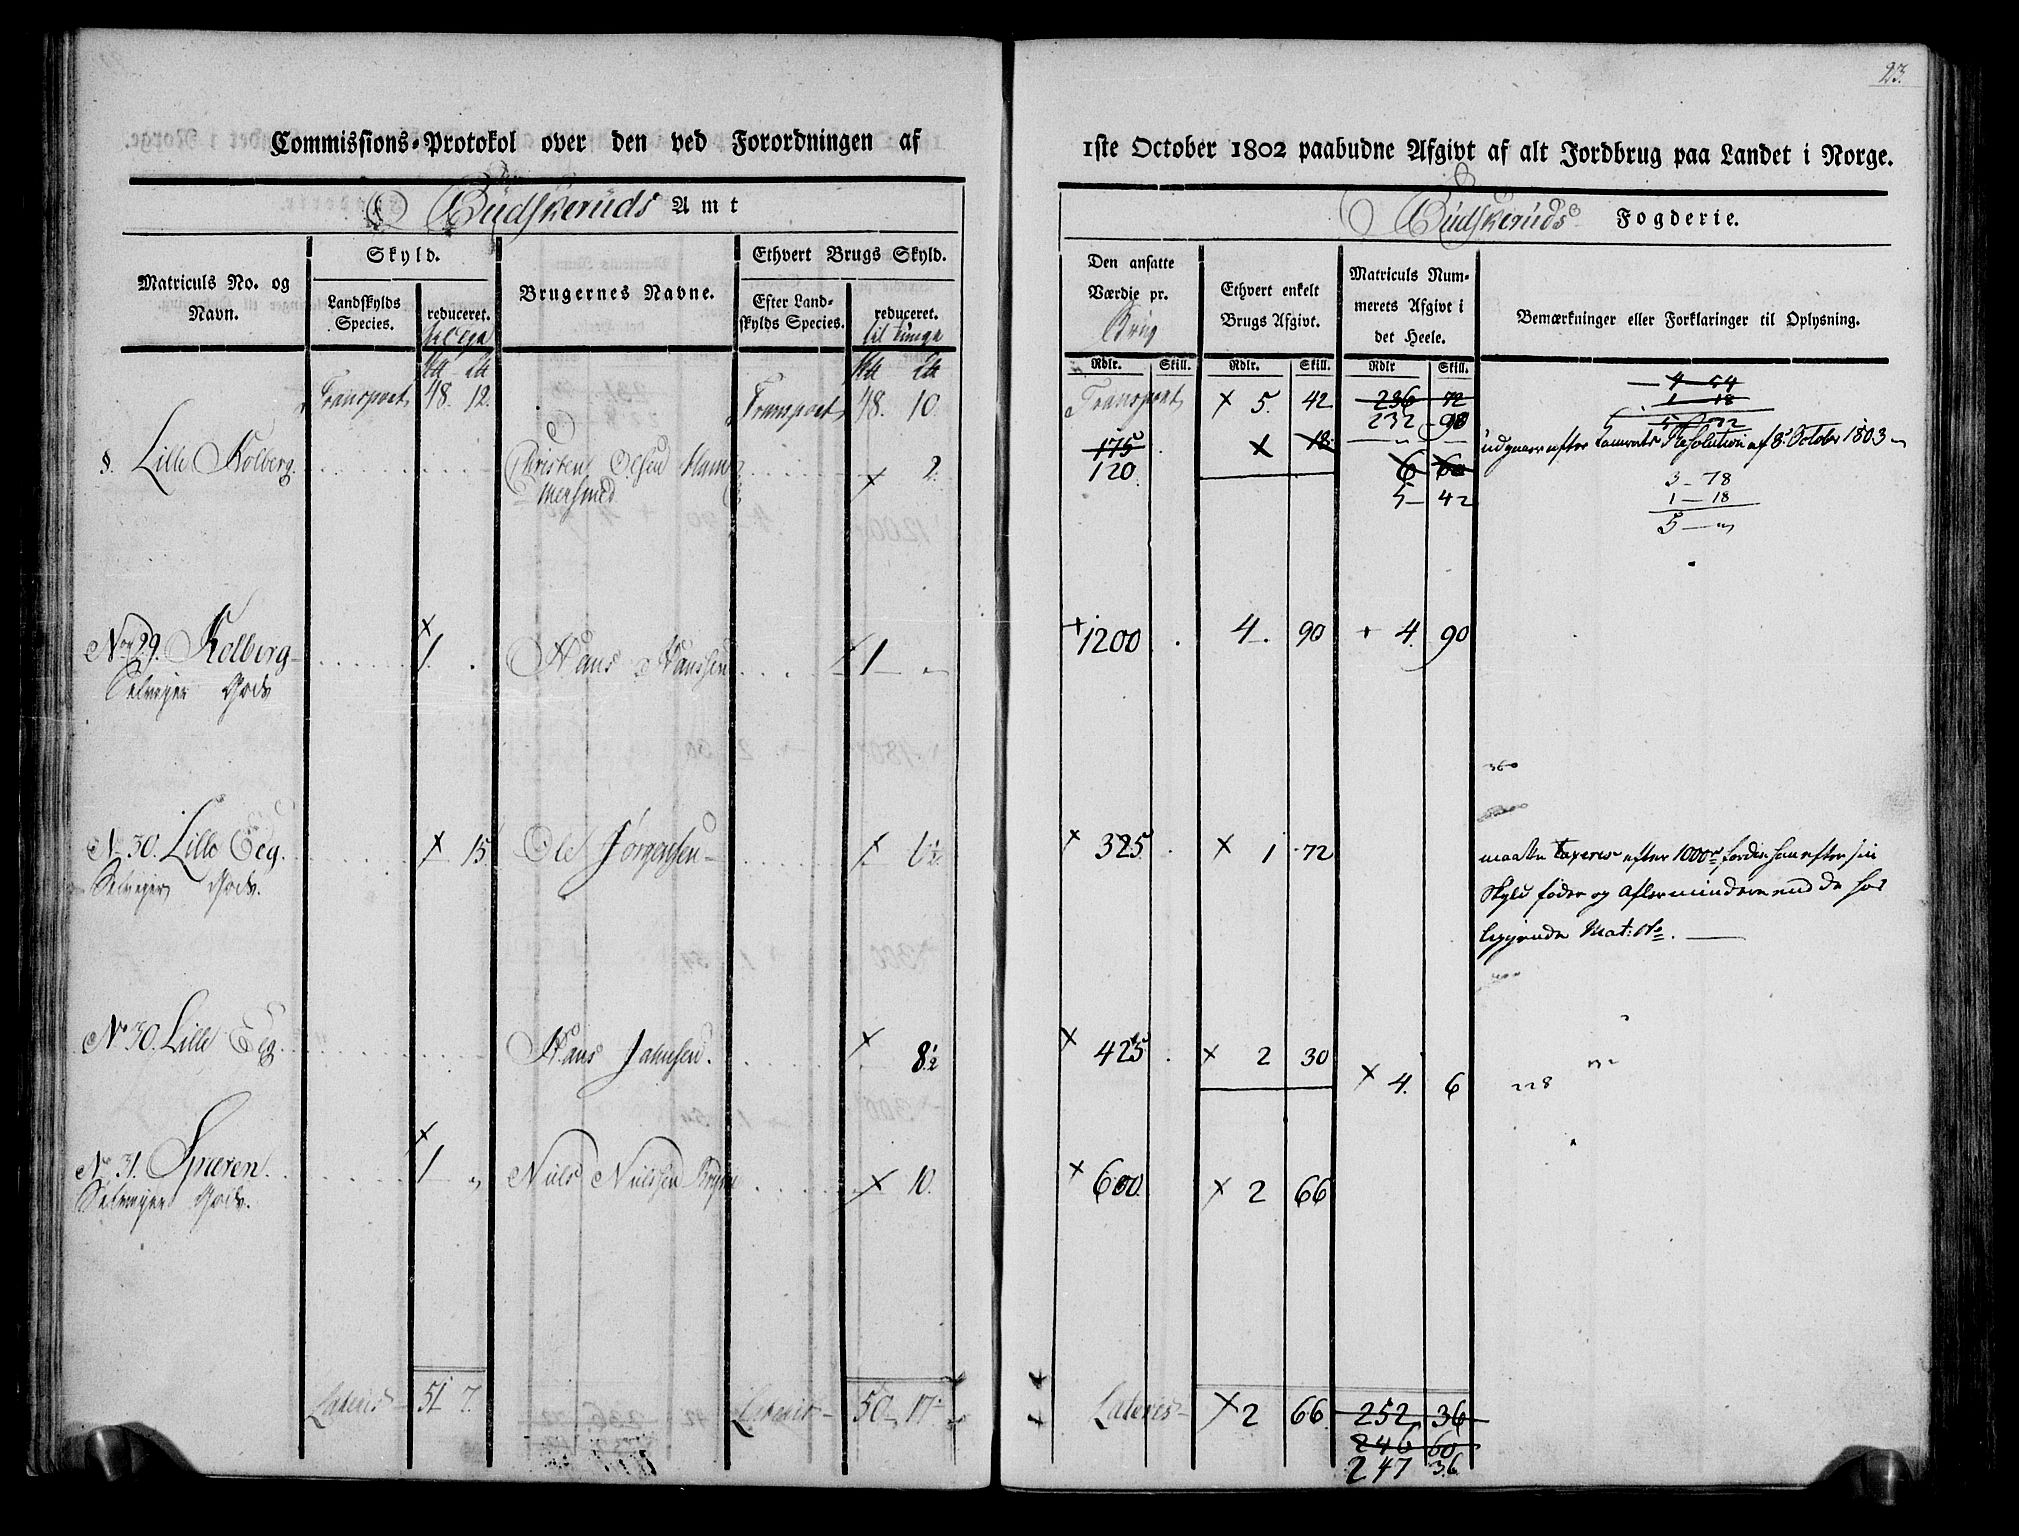 23.
Commissions-Protokol over den ved Forordningen af
1ste October 1802 paabudne Afgivt af alt Jordbrug paa Landet i Norge.
Budskeruds Amt
Budskeruds Fogderie.
Matriculs No. og Navn.
Skyld.
Landskylds Species.
reduceret.
Brugernes Navne.
Ethvert Brugs Skyld.
Efter Landskylds Species.
reduceret.
til Tunge
Den ansatte Værdie pr.
Brug
Ethvert enkelt Brugs Afgivt.
Matriculs Nummerets Afgivt i det Heele.
Bemærkninger eller Forklaringer til Oplysning.
Rdlr. Skill. Rdlr. Skill. Rdlr Skill.
Transport 48. 12. Transport 48. 10.
Transport × 5. 42 236 72
232 90
4 54
1 18
5 72
§. Lille Kolberg. Christen Olsen Ham
mersmed × 2.
175 × 18
120. 6 60
5 42
efter Resolution af 8de October 1803
3 – 78
1 – 18
5 – "
No 29. Kolberg × 1. Hans Hanssen 1 – "
Selveier Gods
+ 1200 4. 90 + 4. 90
No 30. Lille Eeg. × 15 Ole Jørgensen × 6½
Selveier Gods.
× 325 × 1 72
360
maatte taxeres efter 1000 rd fordi han efter sin
Skyld føder og afler mindre end de hos
liggende Mat: No. —
No 30. Lille Eeg. Hans × 8½
× 425 × 2 30 × 4. 6
228
No 31. Spæren. × 1 " Niels Nielssen × 10.
Selveier Gods.
× 600 × 2 66
Lateris 51 7. Lateris 50 17
Lateris × 2 66 252 36
246 60
247 36